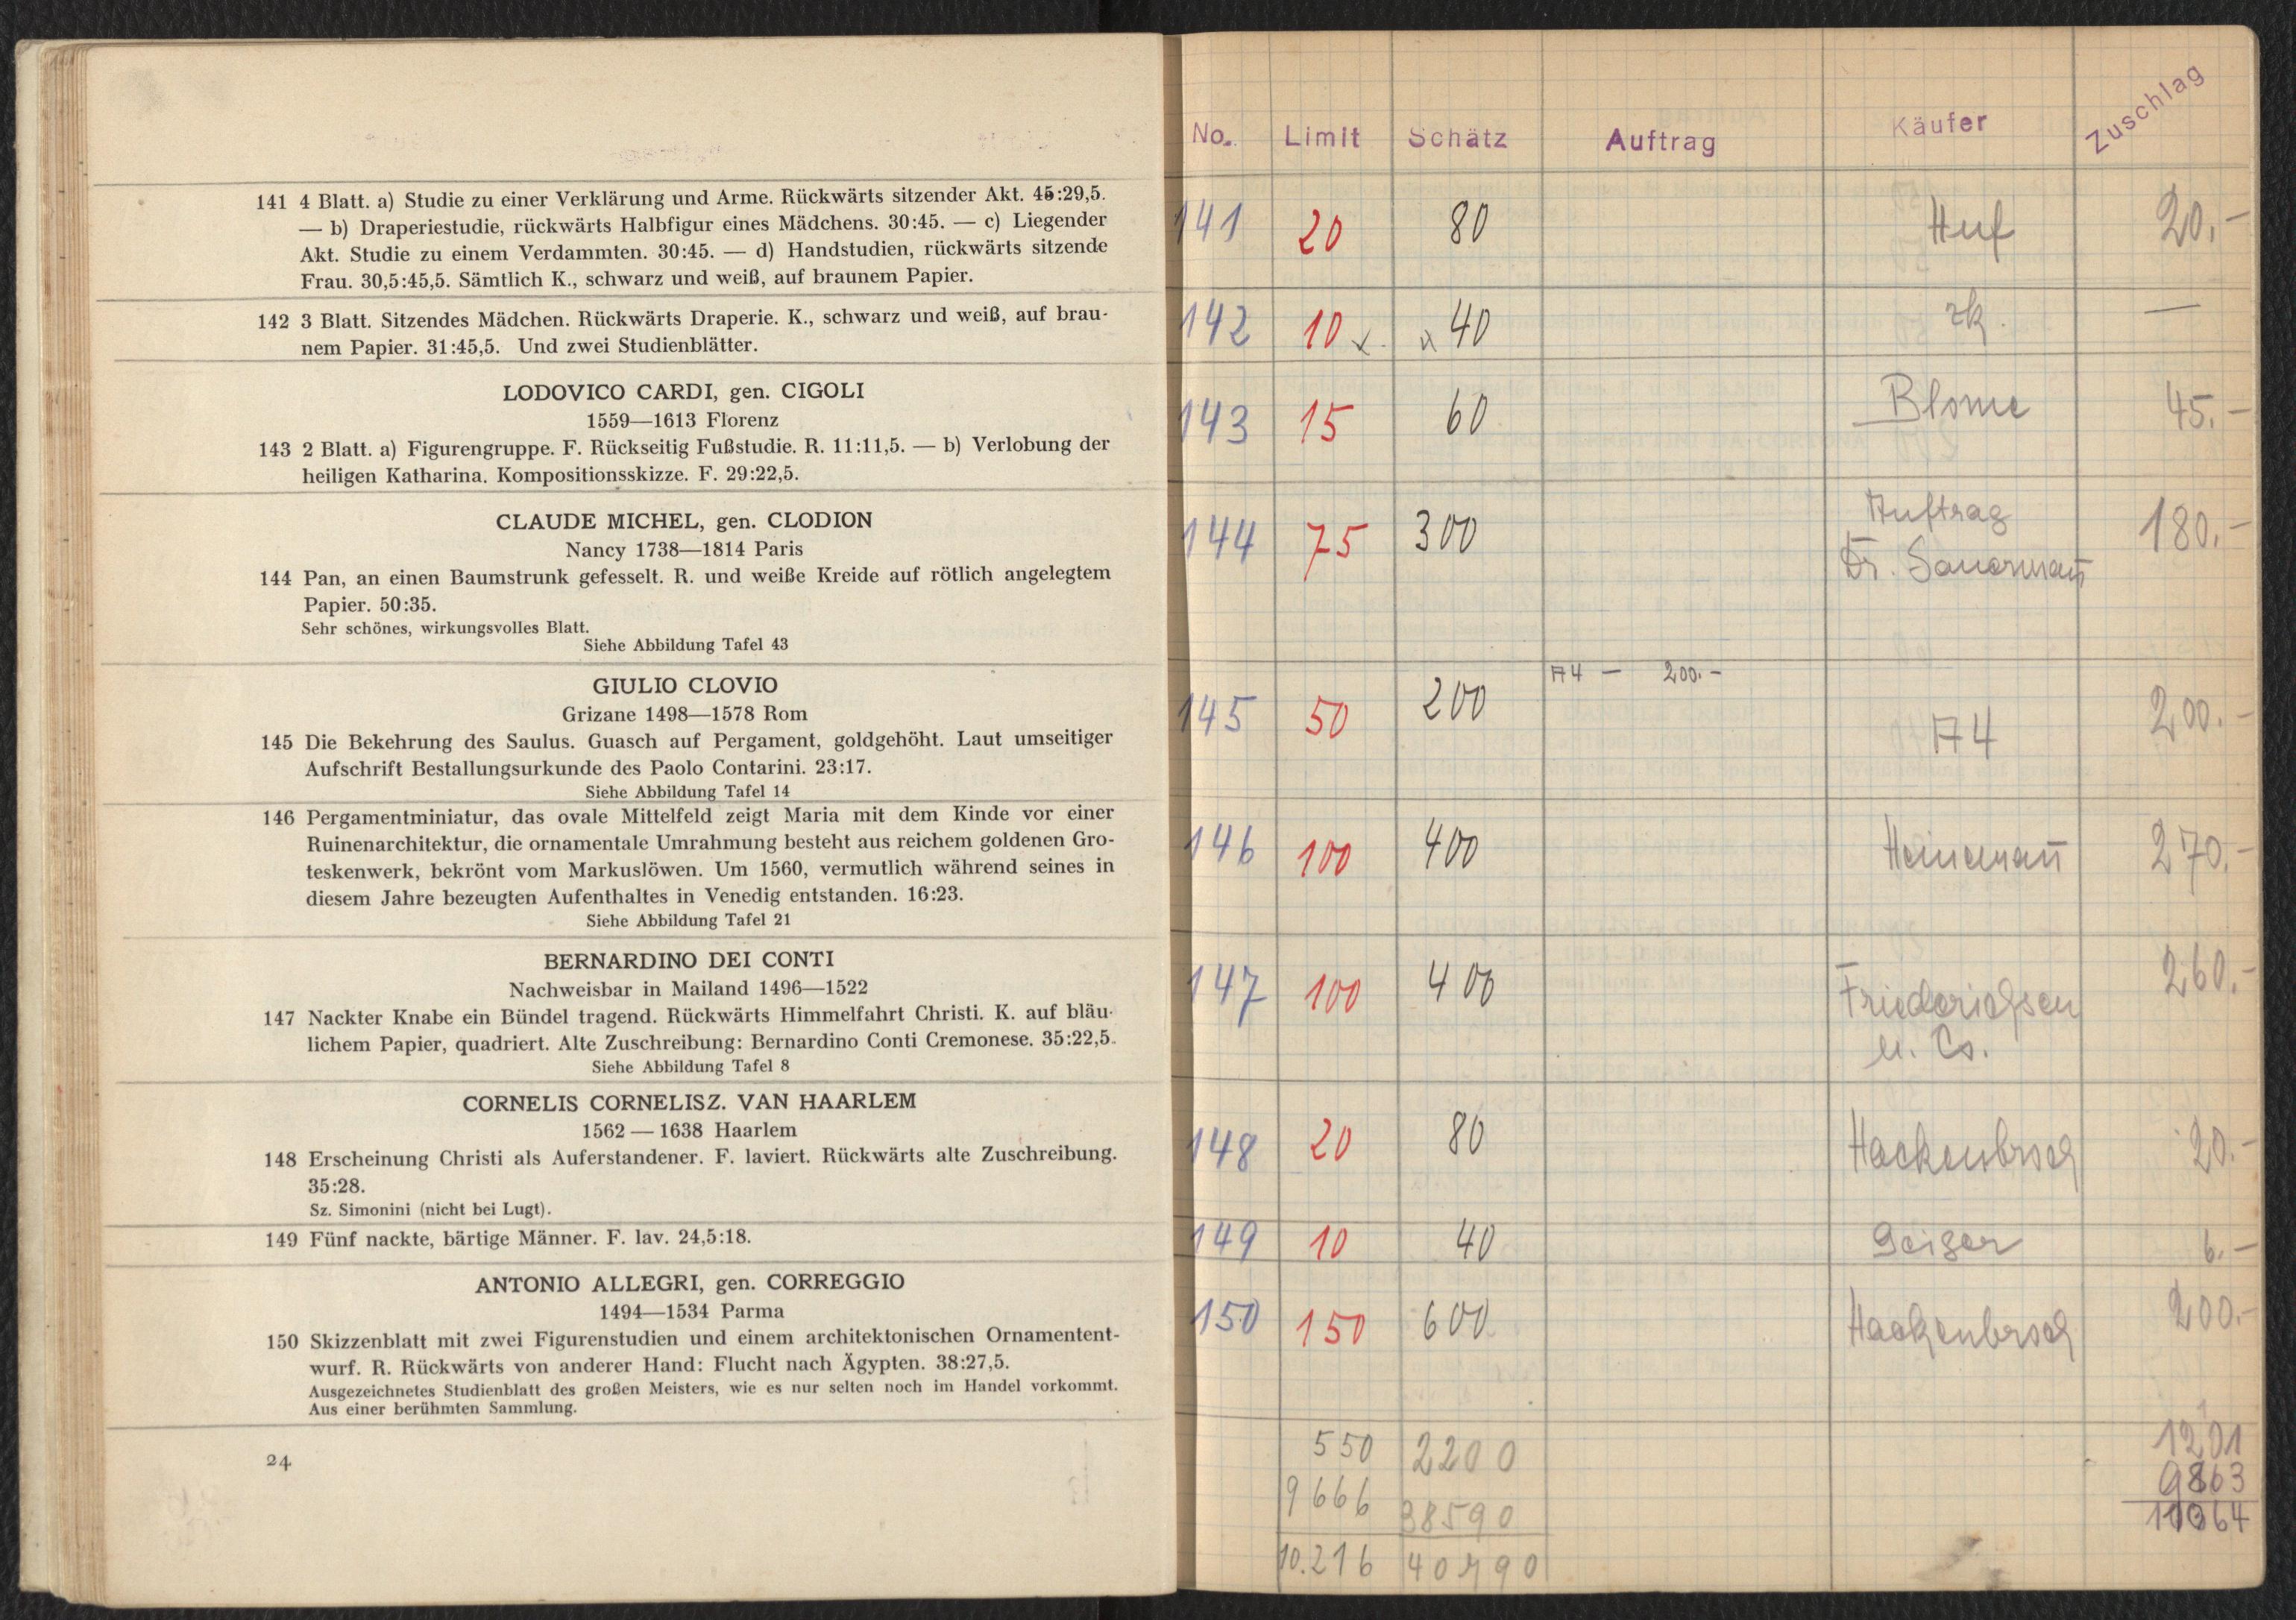 141 4 Blatt. a) Studie zu einer Verklärung und Arme. Rückwärts sitzender Akt. 45:29,5.
— b) Draperiestudie, rückwärts Halbfigur eines Mädchens. 30:45. — c) Liegender
Akt. Studie zu einem Verdammten. 30:45. — d) Handstudien, rückwärts sitzende
Frau. 30,5:45,5. Sämtlich K., schwarz und weiß, auf braunem Papier.
142 3 Blatt. Sitzendes Mädchen. Rückwärts Draperie. K., schwarz und weiß, auf brau-
nem Papier. 31:45,5. Und zwei Studienblätter.
LODOVICO CARDI, gen. CIGOLI
1559—1613 Florenz
143 2 Blatt. a) Figurengruppe. F. Rückseitig Fußstudie. R. 11:11,5. — b) Verlobung der
heiligen Katharina. Kompositionsskizze. F. 29:22,5.
CLAUDE MICHEL, gen. CLODION
Nancy 1738—1814 Paris
144 Pan, an einen Baumstrunk gefesselt. R. und weiße Kreide auf rötlich angelegtem
Papier. 50:35.
Sehr schönes, wirkungsvolles Blatt.
Siehe Abbildung Tafel 43
GIULIO CLOVIO
Grizane 1498—1578 Rom
145 Die Bekehrung des Saulus. Guasch auf Pergament, goldgehöht. Laut umseitiger
Aufschrift Bestallungsurkunde des Paolo Contarini. 23:17.
Siehe Abbildung Tafel 14
146 Pergamentminiatur, das ovale Mittelfeld zeigt Maria mit dem Kinde vor einer
Ruinenarchitektur, die ornamentale Umrahmung besteht aus reichem goldenen Gro-
teskenwerk, bekrönt vom Markuslöwen. Um 1560, vermutlich während seines in
diesem Jahre bezeugten Aufenthaltes in Venedig entstanden. 16:23.
Siehe Abbildung Tafel 21
BERNARDINO DEI CONTI
Nachweisbar in Mailand 1496—1522
147 Nackter Knabe ein Bündel tragend. Rückwärts Himmelfahrt Christi. K. auf bläu-
lichem Papier, quadriert. Alte Zuschreibung: Bernardino Conti Cremonese. 35:22,5.
Siehe Abbildung Tafel 8
CORNELIS CORNELISZ. VAN HAARLEM
1562 — 1638 Haarlem
148 Erscheinung Christi als Auferstandener. F. laviert. Rückwärts alte Zuschreibung.
35:28.
Sz. Simonini (nicht bei Lugt).
149 Fünf nackte, bärtige Männer. F. lav. 24,5:18.
ANTONIO ALLEGRI, gen. CORREGGIO
1494—1534 Parma
150 Skizzenblatt mit zwei Figurenstudien und einem architektonischen Ornamentent-
wurf. R. Rückwärts von anderer Hand: Flucht nach Ägypten. 38:27,5.
Ausgezeichnetes Studienblatt des großen Meisters, wie es nur selten noch im Handel vorkommt.
Aus einer berühmten Sammlung.
24
No. Limit Schätz Auftrag Käufer Zuschlag
141 20 80 Huf 20.-
142 10 x x 40 zk. —
143 15 60 Blome 45.-
144 75 300 Auftrag 180.-
A4 — 200.-
145 50 200 A4 200.-
146 100 400 Heineman̄ 270.-
147 100 400 Friederichsen 260.-
u. Co.
148 20 80 Hackenbroch 20.-
149 10 40 Geiger 6.-
150 150 600 Hackenbroch 200.-
550 2200 1201
9666 38590 9863
10.216 40790